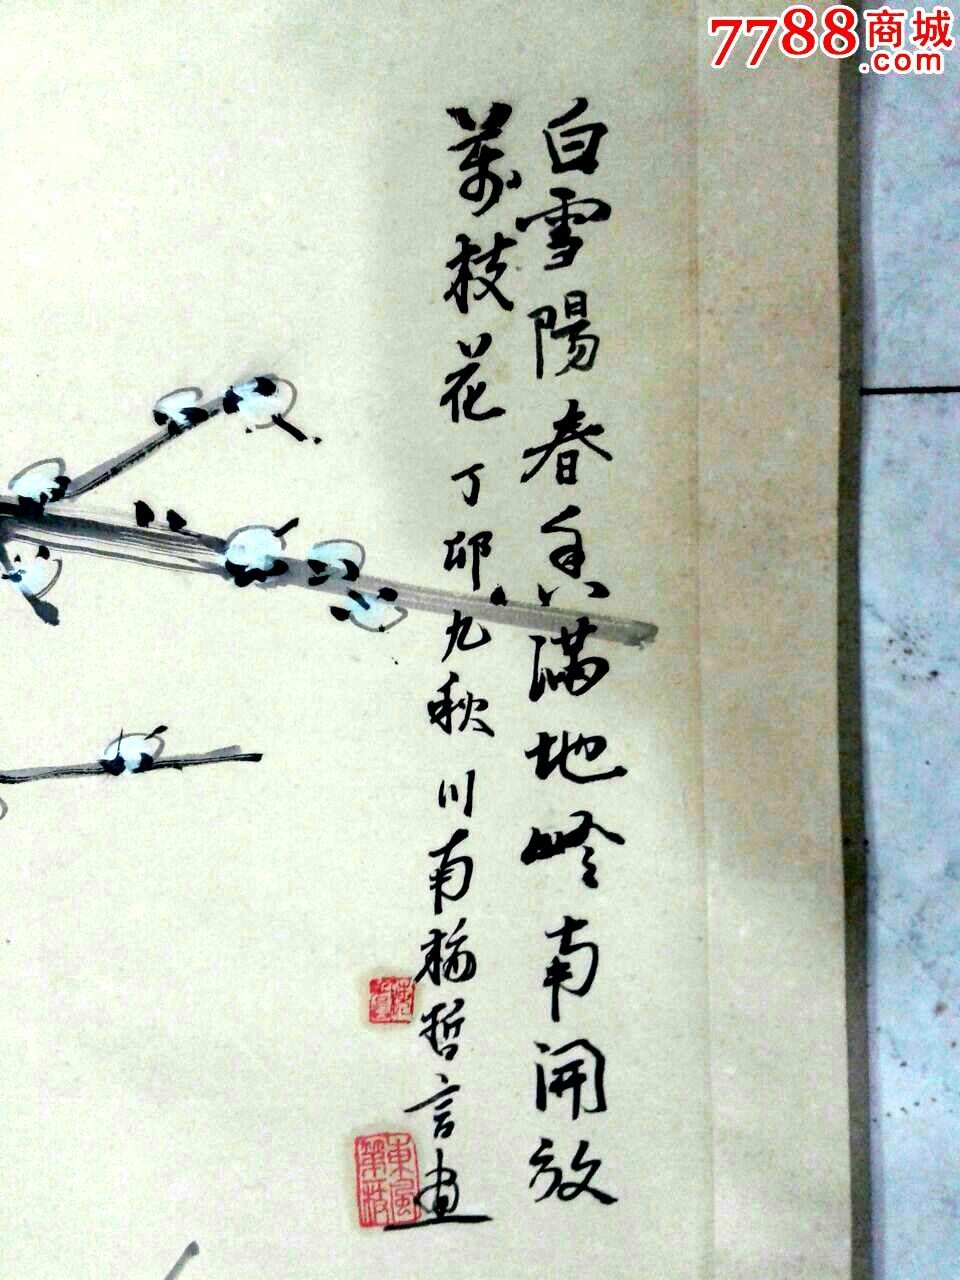 7788商城
.com
白雪陽春香滿地岭南開放
萬枝花 丁卯九秋 川南楊哲言畫
東風
第一枝